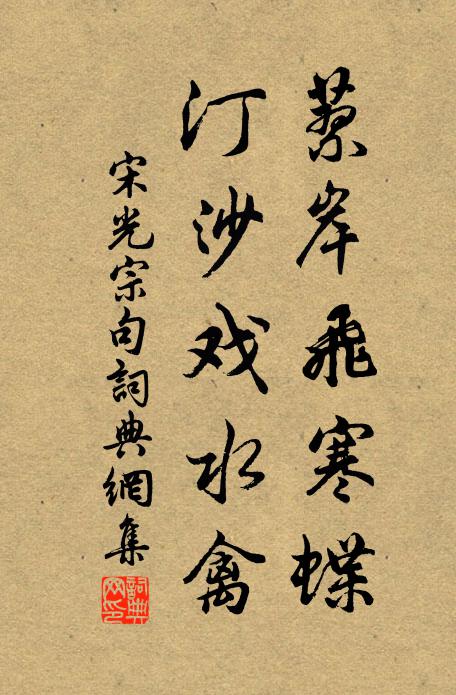 蓼岸飛寒蝶
汀沙戏水禽
宋光宗句詞典網集
詞典
网印